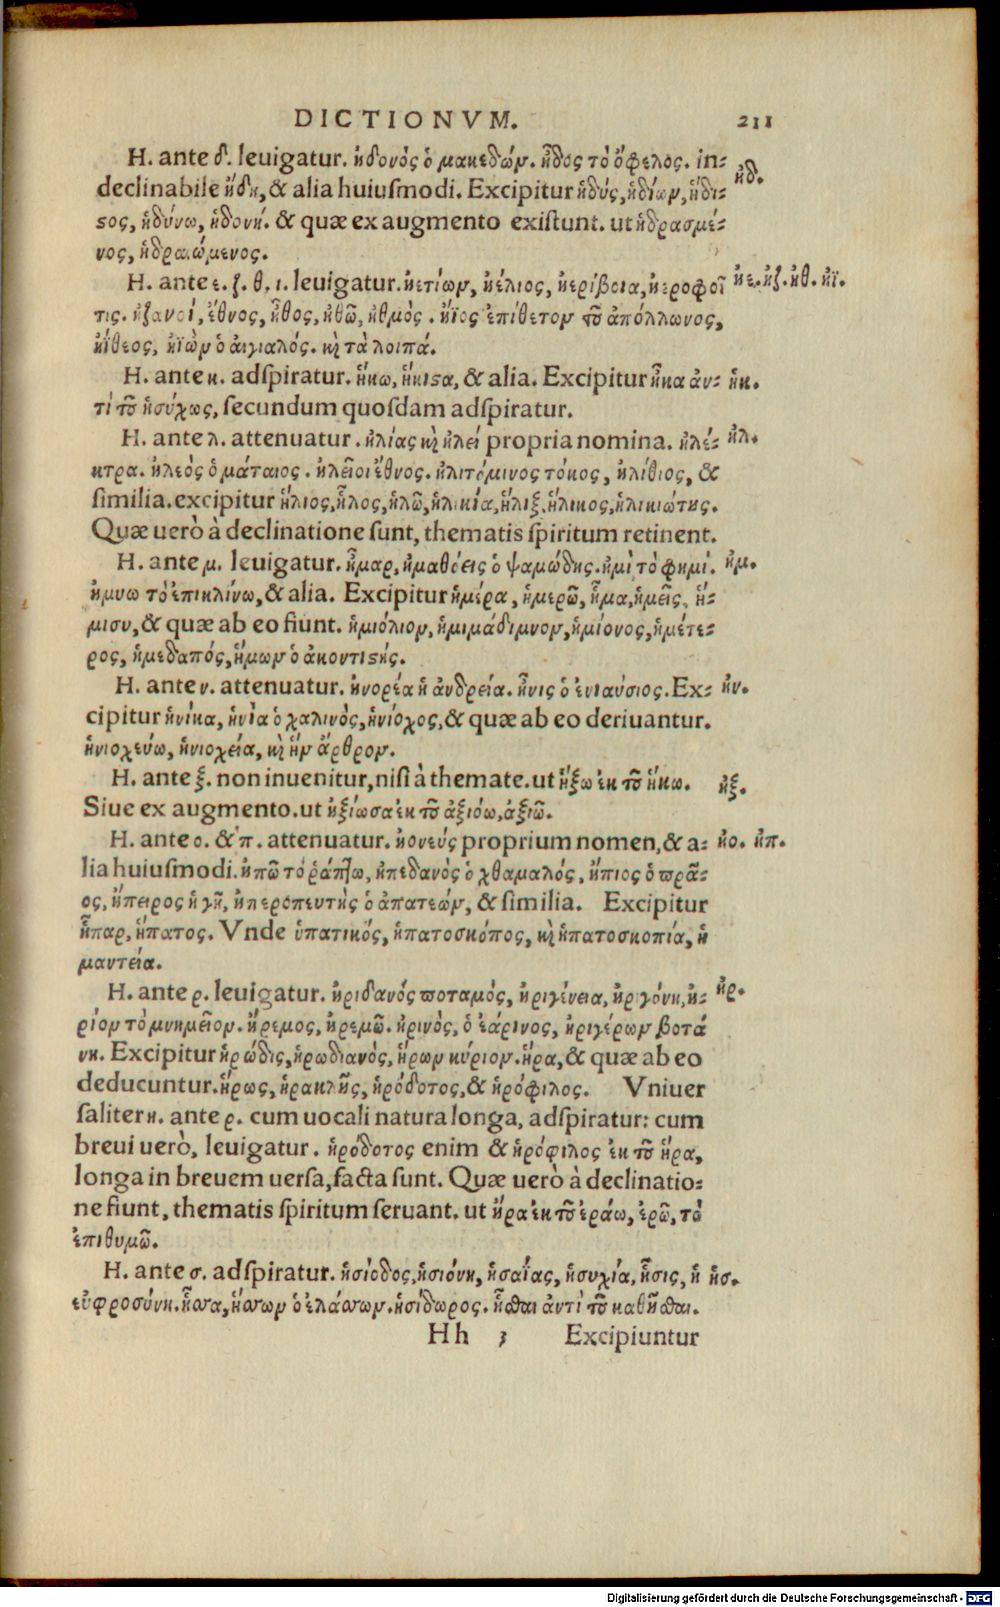 DICTIONVM. 211
H. ante δ. leuigatur. ἠδονὸς ὁ μακεδών. ἦδος τὸ ὄφελος. in=
declinabile ἤδη, & alia huiusmodi. Excipitur ἡδύς, ἡδίων, ἥδι=
ϛος, ἡδύνω, ἡδονή. & quæ ex augmento existunt. ut ἡδρασμέ=
νος, ἡδραιώμενος.
ἠδ.
H. ante ε. ζ. θ. ι. leuigatur. ἠετίων, ἠέλιος, ἠερίβοια, ἠεροφοῖ
τις. ἠζανοί, ἔθνος, ἦθος, ἠθῶ, ἠθμὸς. ἤϊος ἐπίθετον τοῦ ἀπόλλωνος,
ἠΐθεος, ἠϊὼν ὁ αἰγιαλός. κỳ τὰ λοιπά.
ἠε. ἠζ. ἠθ. ἠϊ.
H. ante κ. adspiratur. ἥκω, ἥκιϛα, & alia. Excipitur ἦκα ἀν=
τὶ τοῦ ἡσύχως, secundum quosdam adspiratur.
ἡκ.
H. ante λ. attenuatur. ἠλίας κỳ ἠλεί propria nomina. ἠλέ=
κτρα. ἠλεὸς ὁ μάταιος. ἠλεῖοι ἔθνος. ἠλιτόμινος τόκος, ἠλίθιος, &
similia. excipitur ἥλιος, ἧλος, ἡλῶ, ἡλικία, ἧλιξ, ἥλικος, ἡλικιώτης.
Quæ uerò à declinatione sunt, thematis spiritum retinent.
ἠλ.
H. ante μ. leuigatur. ἦμαρ, ἠμαθόεις ὁ ψαμώδης. ἠμὶ τὸ φημί.
ἠμυω τὸ ἐπικλίνω, & alia. Excipitur ἡμέρα, ἡμερῶ, ἧμα, ἡμεῖς, ἥ=
μισυ, & quæ ab eo fiunt. ἡμιόλιον, ἡμιμάδιμνον, ἡμίονος, ἡμέτε=
ρος, ἡμεδαπός, ἥμων ὁ ἀκοντιϛής.
ἠμ.
H. ante ν. attenuatur. ἠνορέα ἡ ἀνδρεία. ἦνις ὁ ἐνιαύσιος. Ex=
cipitur ἡνίκα, ἡνία ὁ χαλινὸς, ἡνίοχος, & quæ ab eo deriuantur.
ἡνιοχεύω, ἡνιοχεία, κỳ ἥν ἄρθρον.
ἠν.
H. ante ξ. non inuenitur, nisi à themate. ut ἥξω ἐκ τοῦ ἥκω.
Siue ex augmento. ut ἠξίωσα ἐκ τοῦ ἀξιόω, ἀξιῶ.
ἠξ.
H. ante ο. & π. attenuatur. ἠονεύς proprium nomen, & a=
lia huiusmodi. ἠπῶ τὸ ῥάπτω, ἠπεδανὸς ὁ χθαμαλός, ἤπιος ὁ πρᾶ=
ος, ἤπειρος ἡ γῆ, ἠπεροπευτὴς ὁ ἀπατεών, & similia. Excipitur
ἧπαρ, ἥπατος. Vnde ὑπατικός, ἡπατοσκόπος, κỳ ἡπατοσκοπία, ἡ
μαντεία.
ἠο. ἠπ.
H. ante ρ. leuigatur. ἠριδανός ποταμὸς, ἠριγένεια, ἠριγόνη, ἠ=
ρίον τὸ μνημεῖον. ἤρεμος, ἠρεμῶ. ἠρινὸς, ὁ ἐάρινος, ἠριγέρων βοτά
νη. Excipitur ἡρώδις, ἡρωδιανὸς, ἥρων κύριον. ἥρα, & quæ ab eo
deducuntur. ἥρως, ἡρακλῆς, ἡρόδοτος, & ἡρόφιλος. Vniuer
saliter η. ante ρ. cum uocali natura longa, adspiratur: cum
breui uerò, leuigatur. ἡρόδοτος enim & ἡρόφιλος ἐκ τοῦ ἥρα,
longa in breuem uersa, facta sunt. Quæ uerò à declinatio=
ne fiunt, thematis spiritum seruant. ut ἤρα ἐκ τοῦ ἐράω, ἐρῶ, τὸ
ἐπιθυμῶ.
ἠρ.
H. ante σ. adspiratur. ἡσίοδος, ἡσιόνη, ἡσαΐας, ἡσυχία, ἧσις, ἡ
εὐφροσύνη. ἧσσα, ἥσσων ὁ ἐλάσσων. ἡσίδωρος. ἧσθαι ἀντὶ τοῦ καθῆσθαι.
ἡσ.
Hh 3 Excipiuntur
Digitalisierung gefördert durch die Deutsche Forschungsgemeinschaft - DFG